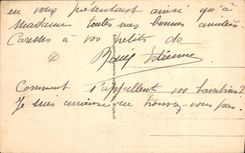 en vous présentant ainsi qu'à
Madame toutes mes bonnes amitiés
Caresses à vos petits de
Comment s'appellent vos bambins?
Je suis curieuse ne trouvez-vous pas.